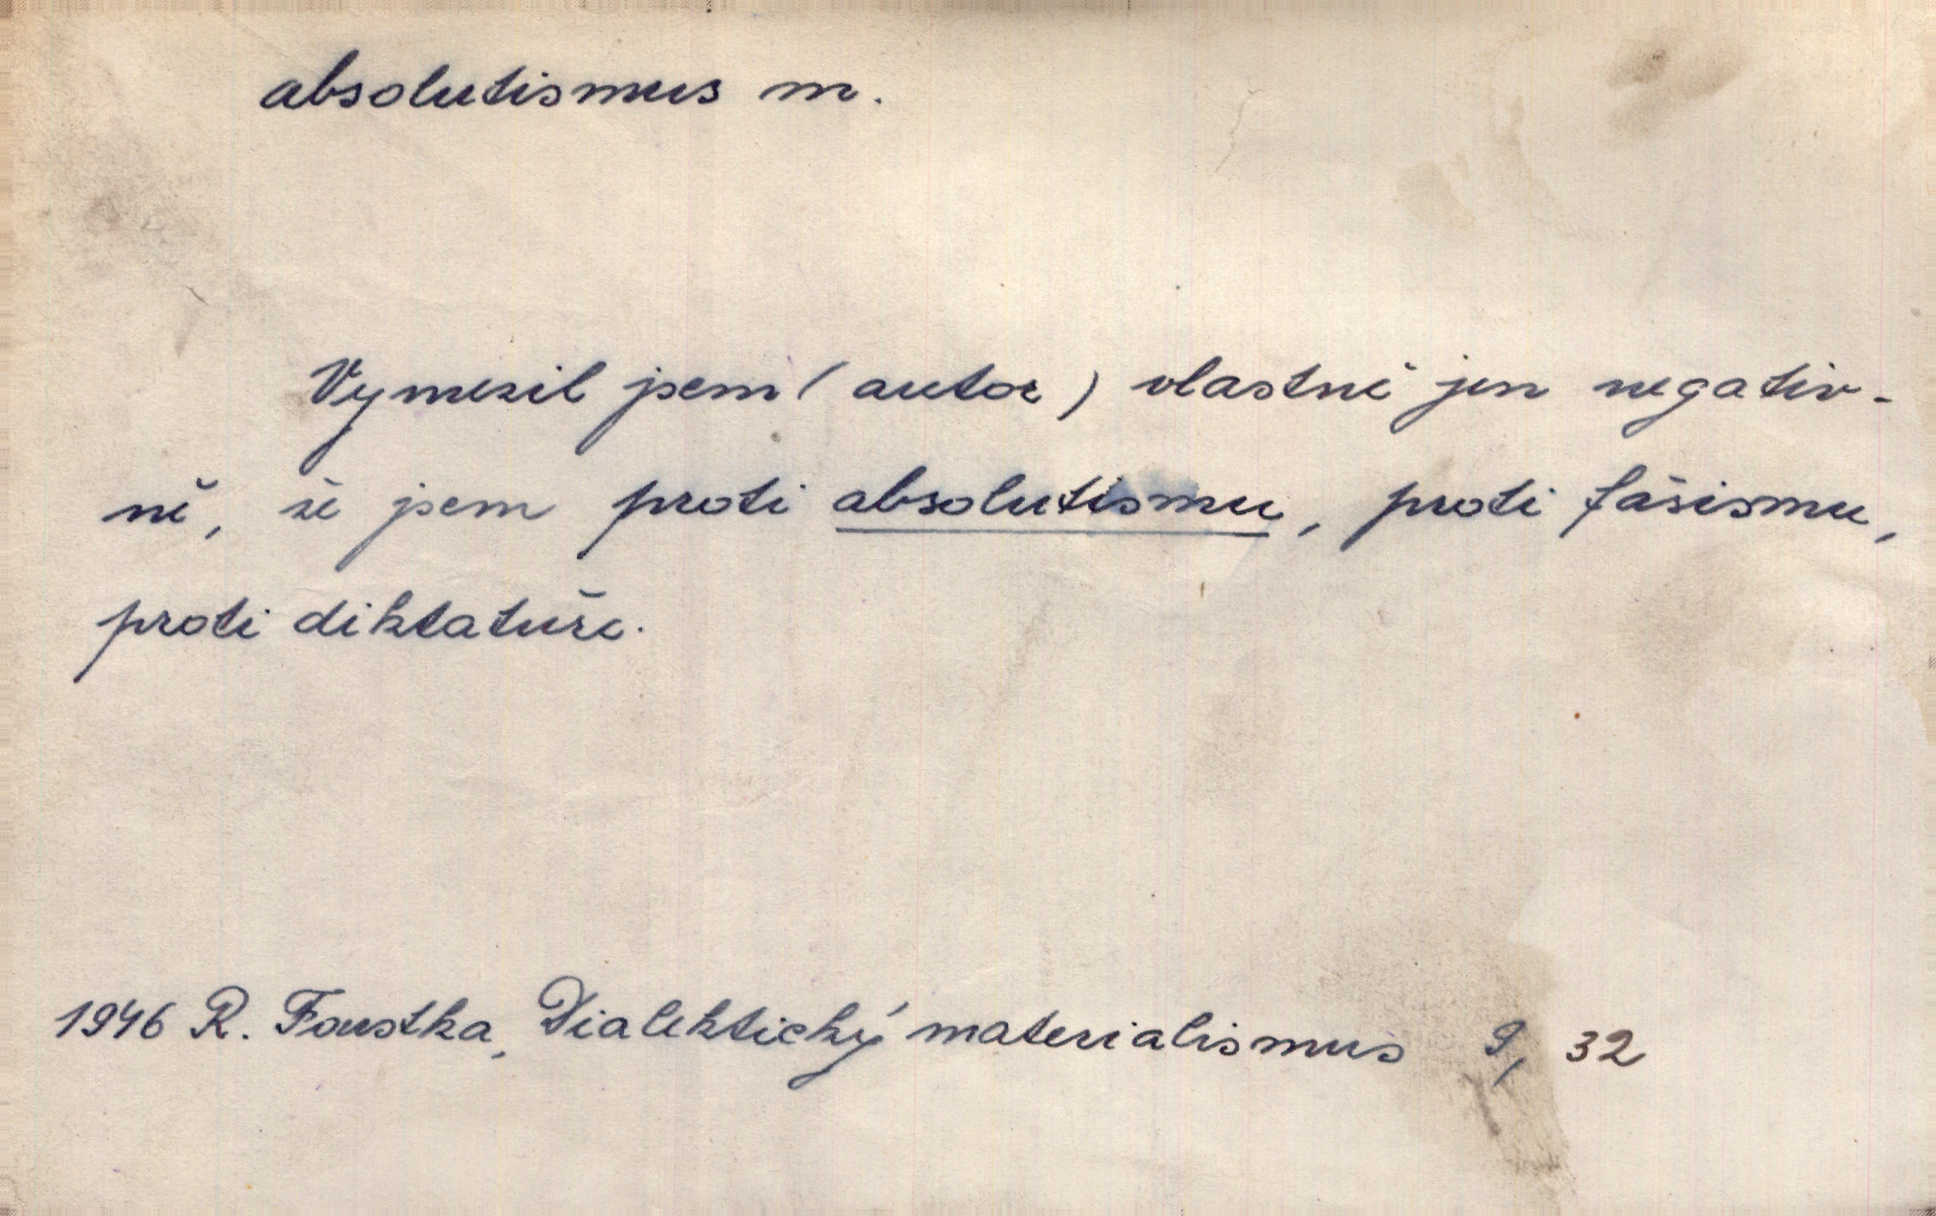 absolutismus m.
Vymezil jsem (autor) vlastně jen negativ-
ně, že jsem proti absolutismu, proti fašismu,
proti diktatuře.
1946 R. Foustka, Dialektický materialismus 9, 32